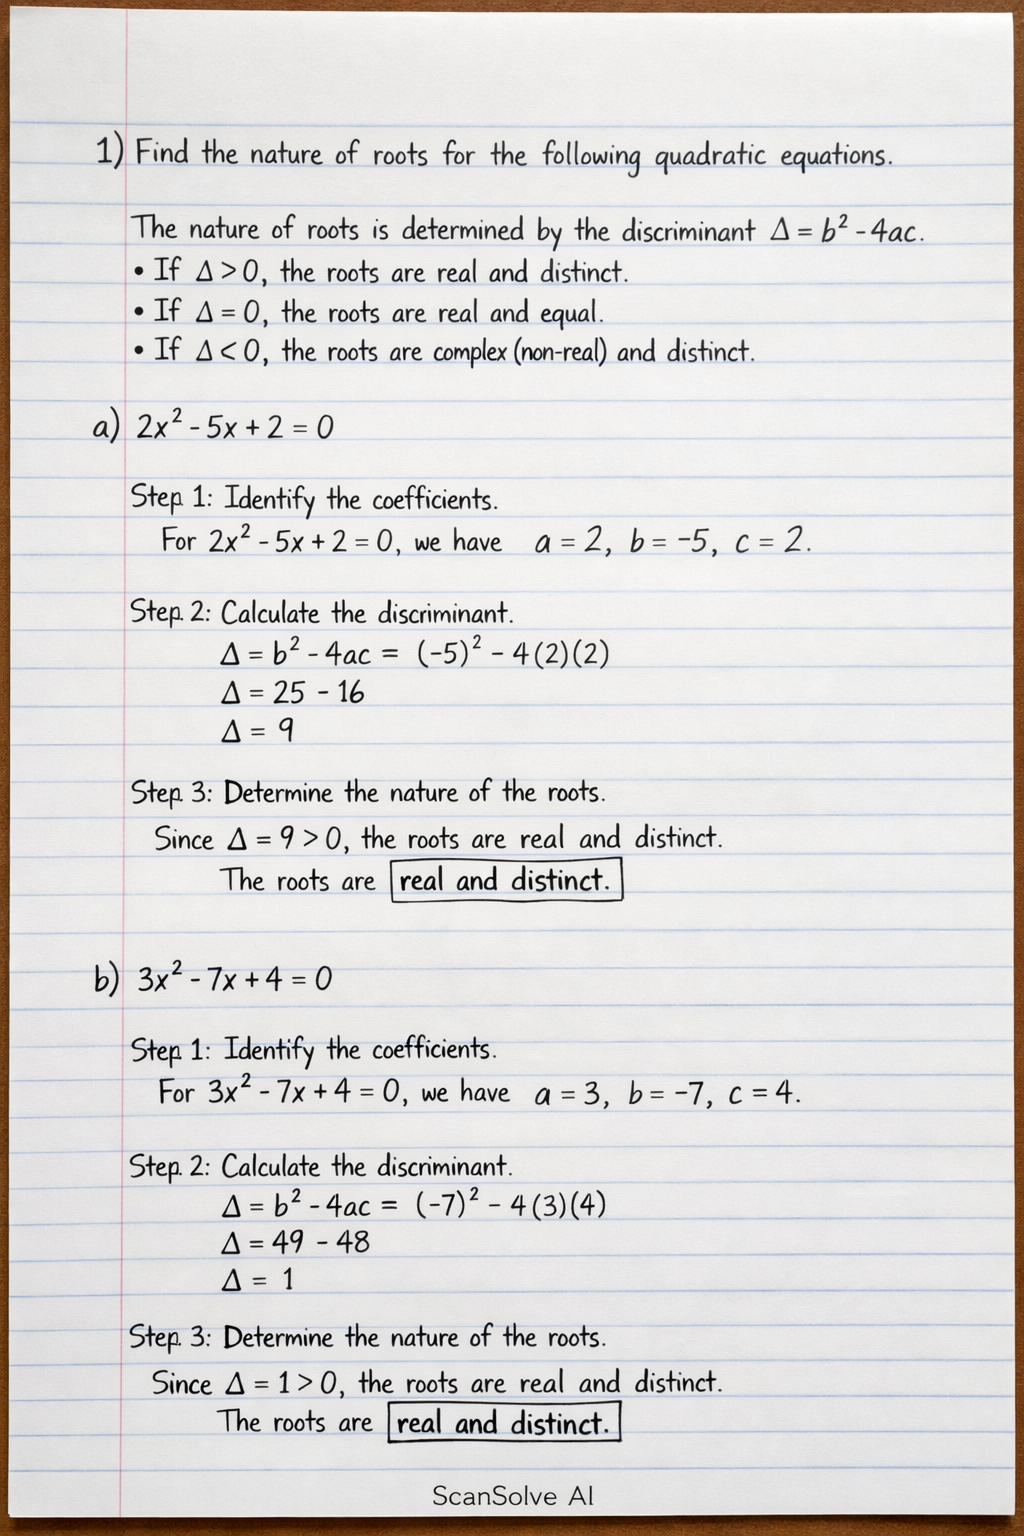 1) Find the nature of roots for the following quadratic equations.
The nature of roots is determined by the discriminant Δ = b² - 4ac.
• If Δ > 0, the roots are real and distinct.
• If Δ = 0, the roots are real and equal.
• If Δ < 0, the roots are complex (non-real) and distinct.
a) 2x² - 5x + 2 = 0
Step 1: Identify the coefficients.
For 2x² - 5x + 2 = 0, we have a = 2, b = -5, c = 2.
Step 2: Calculate the discriminant.
Δ = b² - 4ac = (-5)² - 4(2)(2)
Δ = 25 - 16
Δ = 9
Step 3: Determine the nature of the roots.
Since Δ = 9 > 0, the roots are real and distinct.
The roots are real and distinct.
b) 3x² - 7x + 4 = 0
Step 1: Identify the coefficients.
For 3x² - 7x + 4 = 0, we have a = 3, b = -7, c = 4.
Step 2: Calculate the discriminant.
Δ = b² - 4ac = (-7)² - 4(3)(4)
Δ = 49 - 48
Δ = 1
Step 3: Determine the nature of the roots.
Since Δ = 1 > 0, the roots are real and distinct.
The roots are real and distinct.
ScanSolve AI